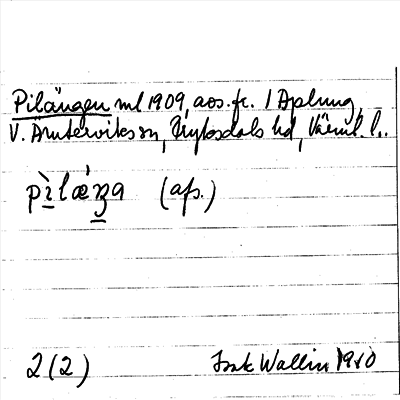 Pilängen ml 1909, avs. fr. 1 Aplung,
V. Ämterviks sn, Fryksdals hd, Värml. l.
pìlæ´ŋa (afs.)
2 (2) Isak Wallin 1910